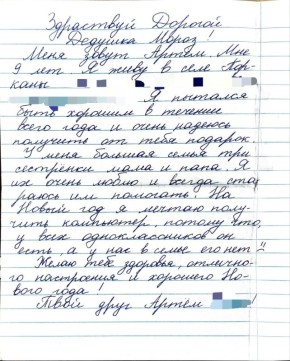 Здраствуй Дорогой
Дедушка Мороз!
Меня зовут Артём. Мне
9 лет. Я живу в селе Пар-
каны
Я пытался
быть хорошим в течение
всего года и очень надеюсь
получить от тебя подарок.
У меня большая семья три
сестрёнки мама и папа. Я
их очень люблю и всегда ста
раюсь им помогать. На
Новый год я мечтаю полу-
чить компьютер, потому что
у всех одноклассников он
есть, а у нас в семье его нет"
Желаю тебе здоровья, отлично-
го настроения и хорошего Но-
вого года!
Твой друг Артём !